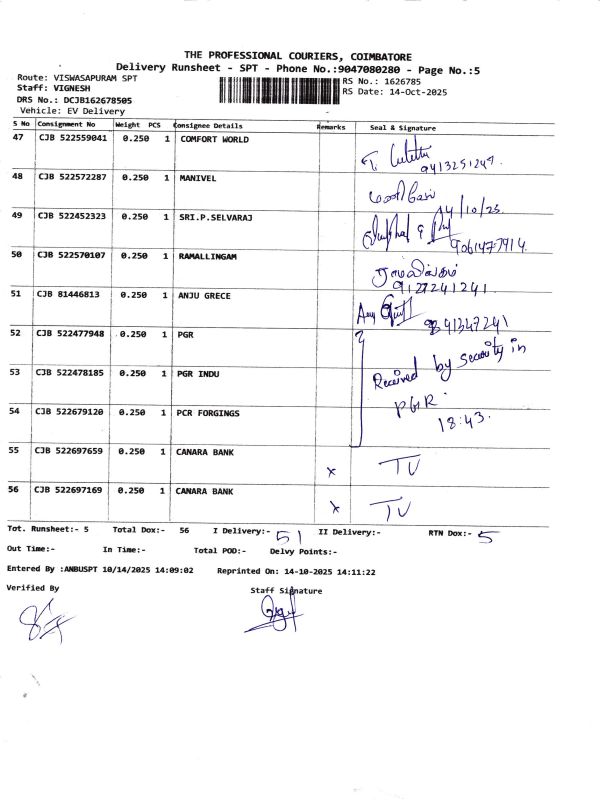 THE PROFESSIONAL COURIERS, COIMBATORE
Delivery Runsheet - SPT - Phone No.:9047080280 - Page No.:5
Route: VISWASAPURAM SPT
RS No.: 1626785
Staff: VIGNESH
RS Date: 14-Oct-2025
DRS No.: DCJB162678505
Vehicle: EV Delivery
S No Consignment No Weight PCS Consignee Details Remarks Seal & Signature
47 CJB 522559041 0.250 1 COMFORT WORLD
9413251247.
48 CJB 522572287 0.250 1 MANIVEL மணிவேல்
14/10/25.
49 CJB 522452323 0.250 1 SRI.P.SELVARAJ
9061477914.
50 CJB 522570107 0.250 1 RAMALLINGAM ராமலிங்கம்
9127241241.
51 CJB 81446813 0.250 1 ANJU GRECE
52 CJB 522477948 0.250 1 PGR
53 CJB 522478185 0.250 1 PGR INDU Received by security in
54 CJB 522679120 0.250 1 PCR FORGINGS PGR.
18:43.
55 CJB 522697659 0.250 1 CANARA BANK x TV
56 CJB 522697169 0.250 1 CANARA BANK x TV
Tot. Runsheet:- 5 Total Dox:- 56 I Delivery:- 51 II Delivery:- RTN Dox:- 5
Out Time:- In Time:- Total POD:- Delvy Points:-
Entered By :ANBUSPT 10/14/2025 14:09:02 Reprinted On: 14-10-2025 14:11:22
Verified By Staff Signature